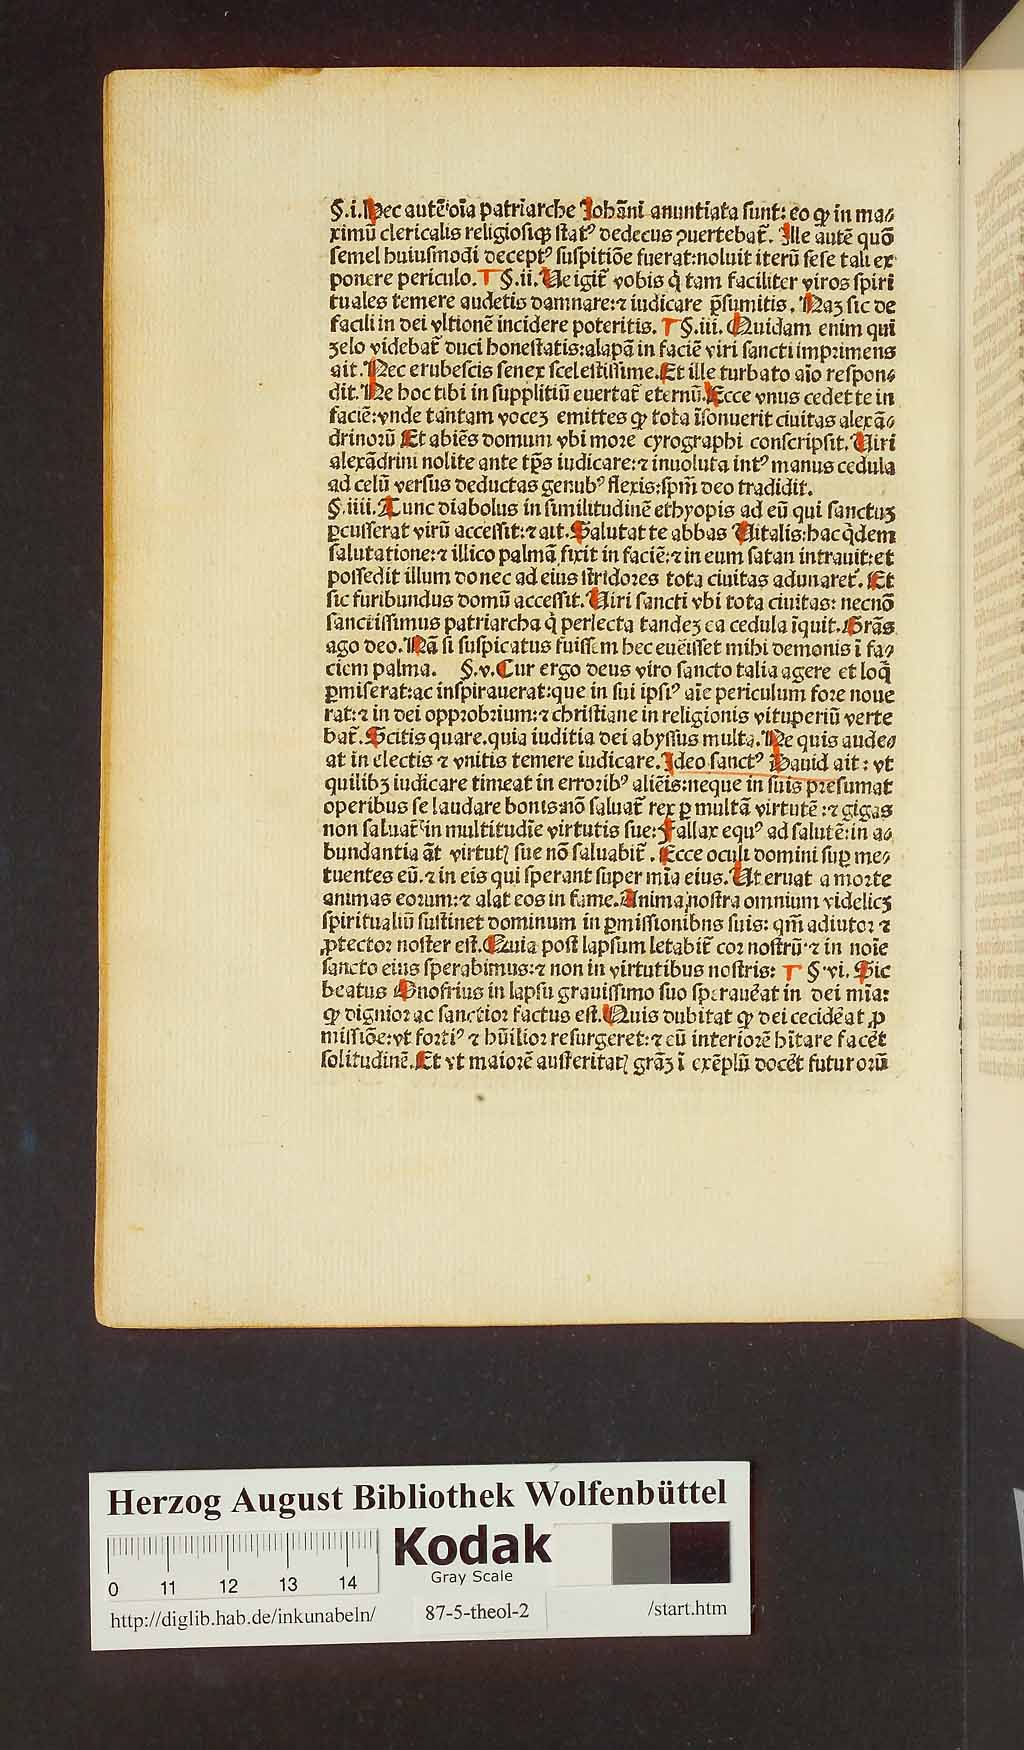 §.i.Hec autē oīa patriarche Johāni anuntiata sunt: eo ꝙ in ma⸗
ximū clericalis religiosiqꝫ statꝰ dedecus ꝯuertebat̄. Ille autē quō
semel huiusmodi deceptꝰ suspitiōe fuerat:noluit iterū sese tali ex
ponere periculo. §.ii. Ue igit̄ vobis q̇ tam faciliter viros spiri
tuales temere audetis damnare:⁊ iudicare p̄sumitis. Naꝫ sic de
facili in dei vltionē incidere poteritis. §.iii. Quidam enim qui
zelo videbat̄ duci honestatis:alapā in faciē viri sancti imprimens
ait.Nec erubescis senex scelestissime.Et ille turbato aīo respon⸗
dit.Ne hoc tibi in supplitiū euertat̄ eternū.Ecce vnus cedet te in
faciē:vnde tantam voceꝫ emittes ꝙ tota īsonuerit ciuitas alexā⸗
drinorū Et abiēs domum vbi more cyrographi conscripsit.Uiri
alexādrini nolite ante tp̄s iudicare:⁊ inuoluta intꝰ manus cedula
ad celū versus deductas genubꝰ flexis:spm̄ deo tradidit.
§.iiii.Tunc diabolus in similitudinē ethyopis ad eū qui sanctuꝫ
ꝑcusserat virū accessit:⁊ ait.Salutat te abbas Uitalis:hac q̇dem
salutatione:⁊ illico palmā fixit in faciē:⁊ in eum satan intrauit:et
possedit illum donec ad eius stridores tota ciuitas adunaret̄. Et
sic furibundus domū accessit.Uiri sancti vbi tota ciuitas: necnō
sanctissimus patriarcha q̇ perlecta tandeꝫ ea cedula īquit.Grās
ago deo.Nā si suspicatus fuissem hec euēisset mihi demonis ī fa⸗
ciem palma. §.v.Cur ergo deus viro sancto talia agere et loq̄
ꝑmiserat:ac inspirauerat:que in sui ipsiꝰ aīe periculum fore noue
rat:⁊ in dei opprobrium:⁊ christiane in religionis vituperiū verte
bat̄.Scitis quare.quia iuditia dei abyssus multa.Ne quis aude⸗
at in electis ⁊ vnitis temere iudicare.Ideo sanctꝰ Dauid ait: vt
quilibꝫ iudicare timeat in erroribꝰ aliēis:neque in suis presumat
operibus se laudare bonis:nō saluat̄ rex ꝑ multā virtutē:⁊ gigas
non saluat̄ in multitudīe virtutis sue:Fallax equꝰ ad salutē:in a⸗
bundantia āt virtutꝭ sue nō saluabit̄. Ecce oculi domini suꝑ me⸗
tuentes eū.⁊ in eis qui sperant super mīa eius.Ut eruat a morte
animas eorum:⁊ alat eos in fame.Anima nostra omnium videlicꝫ
spiritualiū sustinet dominum in ꝑmissionibns suis: qm̄ adiutor ⁊
ꝓtector noster est.Quia post lapsum letabit̄ cor nostrū ⁊ in noīe
sancto eius sperabimus:⁊ non in virtutibus nostris: §.vi. Sic
beatus Onofrius in lapsu grauissimo suo sperauēat in dei mīa:
ꝙ dignior ac sanctior factus est.Quis dubitat ꝙ dei cecidēat ꝓ
missiōe:vt fortiꝰ ⁊ hūilior resurgeret:⁊ cū interiorē hītare facēt
solitudinē.Et vt maiorē austeritatꝭ grāꝫ ī exēplū docēt futurorū
Herzog August Bibliothek Wolfenbüttel
Kodak
Gray Scale
0 11 12 13 14
http://diglib.hab.de/inkunabeln/ 87-5-theol-2 /start.htm